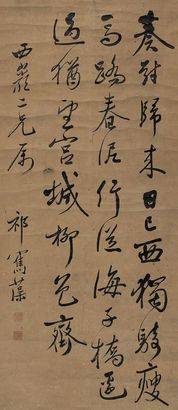 奏對歸来日已西獨騎瘦
馬蹋春泥行從海子橋邊
過猶望宮城柳色齊
西巖二兄屬
祁寯藻